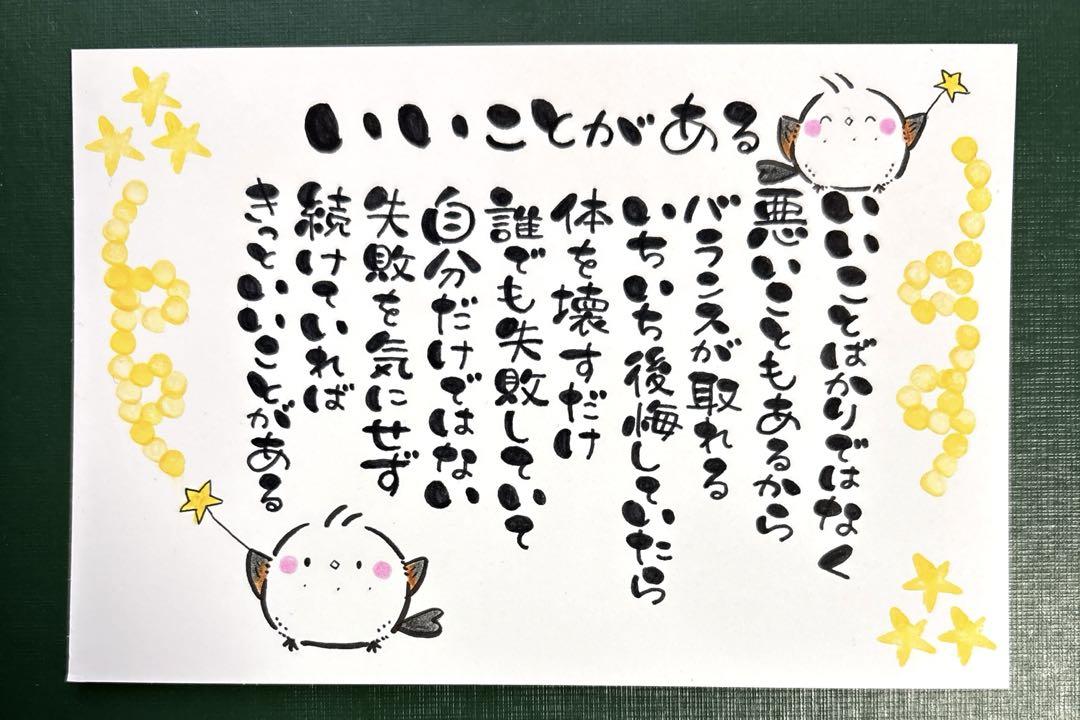 いいことがある
いいことばかりではなく
悪いこともあるから
バランスが取れる
いちいち後悔していたら
体を壊すだけ
誰でも失敗していて
自分だけではない
失敗を気にせず
続けていれば
きっといいことがある